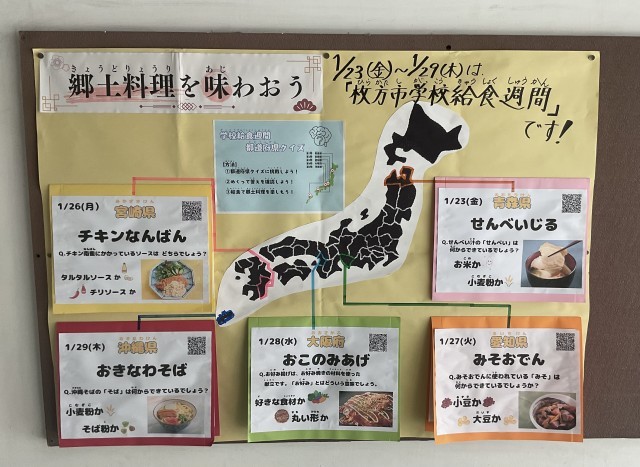 きょうどりょうり あじ
郷土料理を味わおう
1/23(金)～1/29(木)は、
ひらかたし がっこうきゅうしょくしゅうかん
「枚方市学校給食週間」
です!
学校給食週間
都道府県クイズ
【方法】
①都道府県クイズに挑戦しよう!
②めくって答えを確認しよう!
③給食で郷土料理を楽しもう!
1/26(月)
宮崎県
チキンなんばん
Q.チキン南蛮にかかっているソースは どちらでしょう?
タルタルソース か
チリソース か
1/23(金)
青森県
せんべいじる
Q.せんべい汁の「せんべい」は
何からできているでしょう?
お米か
小麦粉か
1/29(木)
沖縄県
おきなわそば
Q.沖縄そばの「そば」は何からできているでしょう?
小麦粉か
そば粉か
1/28(水)
大阪府
おこのみあげ
Q.お好み揚げは、お好み焼きの材料を使った
献立です。「お好み」とはどういう意味でしょう。
好きな食材か
丸い形か
1/27(火)
愛知県
みそおでん
Q.みそおでんに使われている「みそ」は
何からできているでしょうか?
小豆か
大豆か